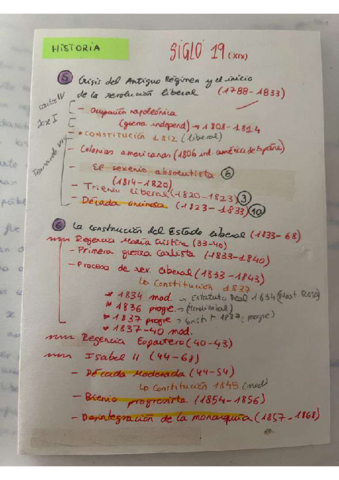 HISTORIA
SIGLO 19 (XIX)
5 Crisis del Antiguo Régimen y el inicio
de la revolución liberal (1788-1833)
Carlos IV
José I
Fernando VII
- Ocupación napoleónica
(guerra independ) → 1808-1814
- CONSTITUCIÓN 1812 (liberal)
- Colonias americanas (1806 ind. américa de España)
- El sexenio absolutista 6
(1814-1820)
- Trienio liberal (1820-1823) 3
- Década ominosa (1823-1833) 10
6 La construcción del Estado liberal (1833-68)
Regencia María Cristina (33-40)
- Primera guerra carlista (1833-1840)
- Proceso de rev. liberal (1833-1843)
La Constitución 1837
* 1834 mod. → Estatuto Real 1834
* 1836 progre. →
* 1837 progre → Const 1837: progre
* 1837-40 mod.
Regencia Espartero (40-43)
Isabel II (44-68)
- Década Moderada (44-54)
La Constitución 1845 (mod)
- Bienio progresista (1854-1856)
- Desintegración de la monarquía (1857-1868)